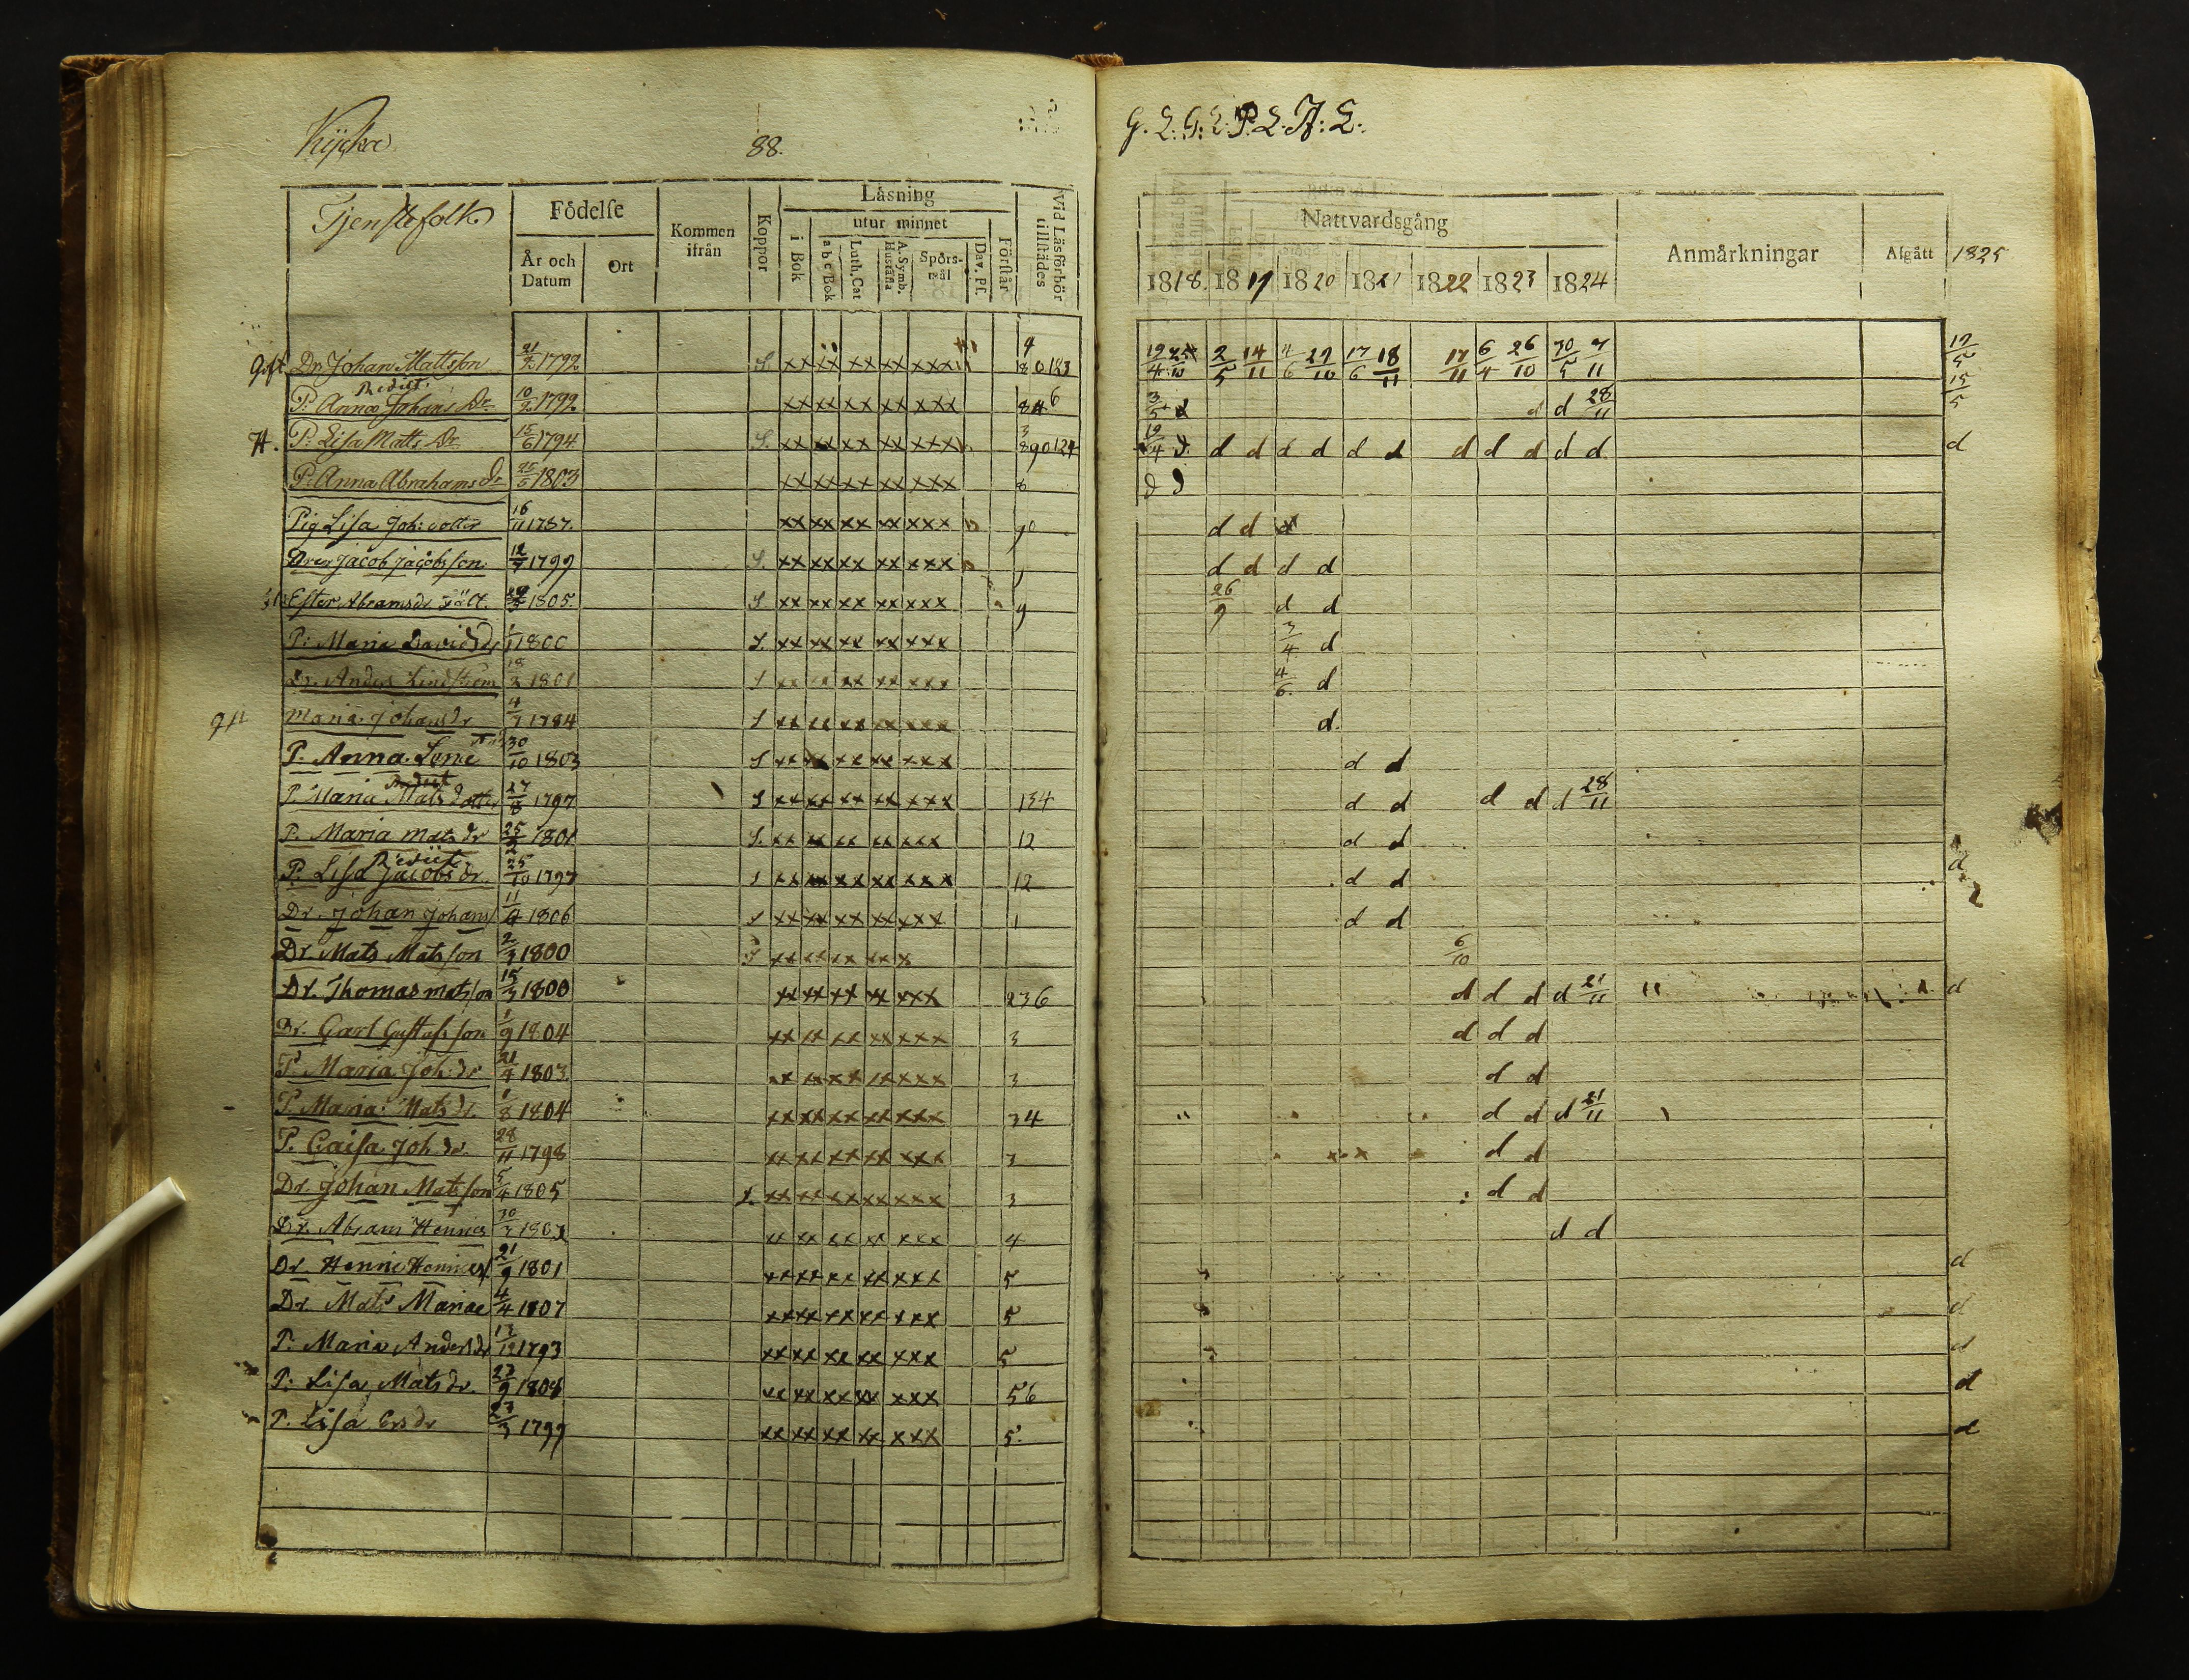 88.
G. L: G: L. P. L. A: L:
Tjenstefolk
Födelse
År och Datum
Ort
Kommen ifrån
Koppor
Läsning
utur minnet
i Bok
a b c Bok
Luth. Cat
A. Symb. Hustafla
Spörsmål
Dav. Ps.
Förstår
Vid Läsförhör tillstädes
Nattvardsgång
1818. 1819 1820 1821 1822 1823 1824
Anmärkningar
Afgått
1825
gift Dr Johan Mattsson 21/2 1792 S. xx xx xx xx xxx 19/4 2/5 14/11 4/6 29/10 17/6 18/11 17/11 6/4 26/10 30/5 7/11 12/5
P: Anna Johans Dr 10/2 1792 xx xx xx xx xxx 3/5 d d 28/11 15/5
P: Lisa Matts Dr 15/6 1794 S. xx xx xx xx xxx 19/4 d. d d d d d d d d d d d d
P: Anna Abrahams dr 25/5 1803 xx xx xx xx xxx 8 d d
Pig Lisa Joh: dotter 16/11 xx xx xx xx xxx d d
Dren Jacob Jacobsson 12/7 1799 S. xx xx xx xx xxx d d d d
Ester Abramsdr 1805. S xx xx xx xx xxx 9 26/9 d d
P: Maria Davidsdr 1800 S. xx xx xx xx xxx 3/4 d
Dr. Anders Lindström 1801 S xx xx xx xx xxx 4/6 d
Maria Johansdr 4/7 1784 S xx xx xx xx xxx d.
P. Anna 30/10 1803 S xx xx xx xx xxx d d
P. Maria Matsdotter 27/8 1797 S xx xx xx xx xxx 134 d d d d d 28/11
P. Maria Mats dr 25/2 1801 S. xx xx xx xx xxx 12 d d
P. Lisa Jacobs dr. 25/10 1797 S xx xx xx xx xxx 12 d d d
Dr. Johan Johans 11/4 1806 S xx xx xx xx xxx 1 d d
Dr. Mats Matsson 2/3 1800 S xx xx xx xx x 6/10
Dr. Thomas Matsson 15/3 1800 xx xx xx xx xxx 236 d d d d 21/11 d
Dr. Carl Gustafsson 1/9 1804 xx xx xx xx xxx 3 d d d
P. Maria Joh: dr 21/4 1803. xx xx xx xx xxx 3 d d
P. Maria Mats dr. 1/8 1804 xx xx xx xx xxx 34 d d d 21/11
P. Caisa Joh dr. 28/11 1798 xx xx xx xx xxx 3 d d
Dr. Johan Matsson 5/4 1805 S. xx xx xx xx xxx 3 d d
Dr. Abram Hennics 30/3 1803 xx xx xx xx xxx 4 d d
Dr. Henric Hennics 21/9 1801 xx xx xx xx xxx 5 d
Dr. Mats Mariae 4/4 1807 xx xx xx xx xxx 5 d
P. Maria Andersdr 13/12 1793 xx xx xx xx xxx 5 d
P: Lisa Mats dr. 23/9 1804 xx xx xx xx xxx 56 d
P. Lisa Ersdr 23/3 1799 xx xx xx xx xxx 5. d